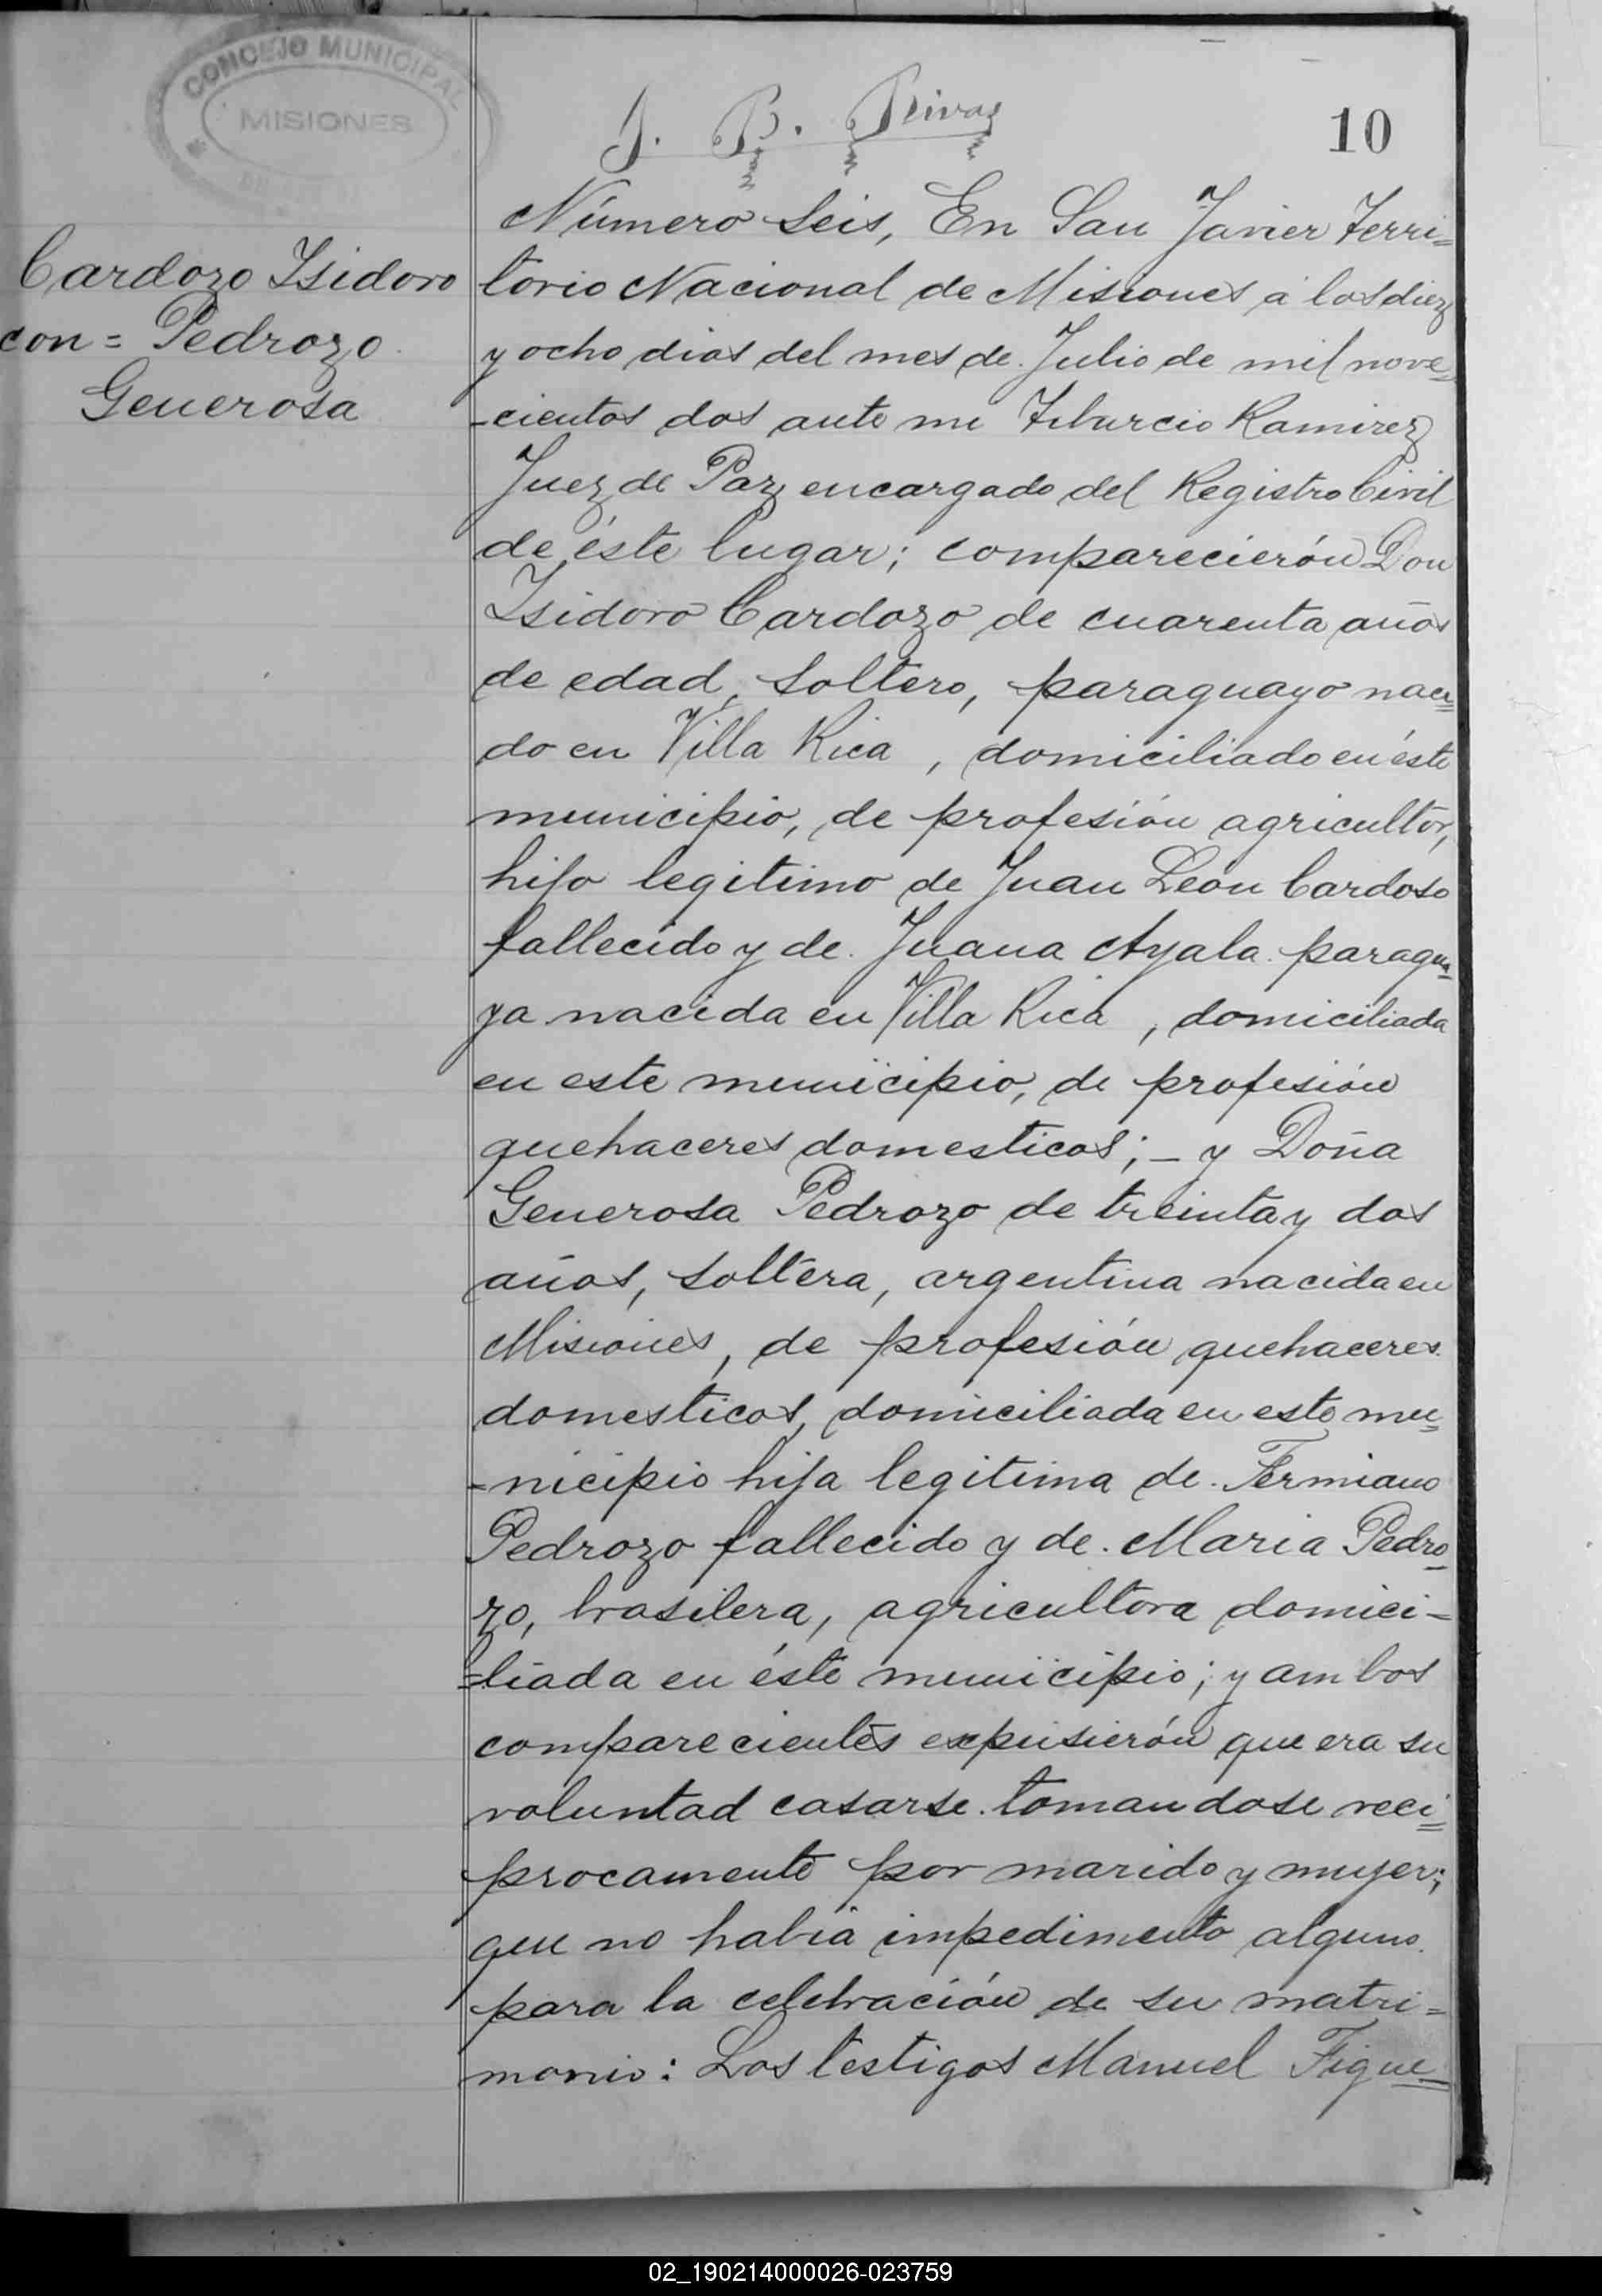 CONCEJO MUNICIPAL
MISIONES
J. B. Rivas
10
Cardozo Isidoro
con = Pedrozo
Generosa
Número Seis, En San Javier Terri=
torio Nacional de Misiones á los diez
y ocho dias del mes de Julio de mil nove=
-cientos dos ante mi Tiburcio Ramirez
Juez de Paz encargado del Registro Civil
de éste lugar; comparecierón Don
Isidoro Cardozo de cuarenta años
de edad, soltero, paraguayo naci=
do en Villa Rica, domiciliado en éste
municipio, de profesión agricultor,
hijo legitimo de Juan León Cardoso
fallecido y de Juana Ayala paragua=
ya nacida en Villa Rica, domiciliada
en este municipio, de profesión
quehaceres domesticos; - y Doña
Generosa Pedrozo de treinta y dos
años, soltéra, argentina nacida en
Misiones, de profesión quehaceres
domesticos, domiciliada en este mu=
-nicipio hija legitima de Fermiano
Pedrozo fallecido y de Maria Pedro=
zo, brasilera, agricultora domici=
=liada en éste municipio; y ambos
comparecientes expusierón que era su
voluntad casarse tomandose reci=
procamente por marido y mujer;
que no habia impedimento alguno
para la celebración de su matri=
monio: Los testigos Manuel Figue=
02_190214000026-023759